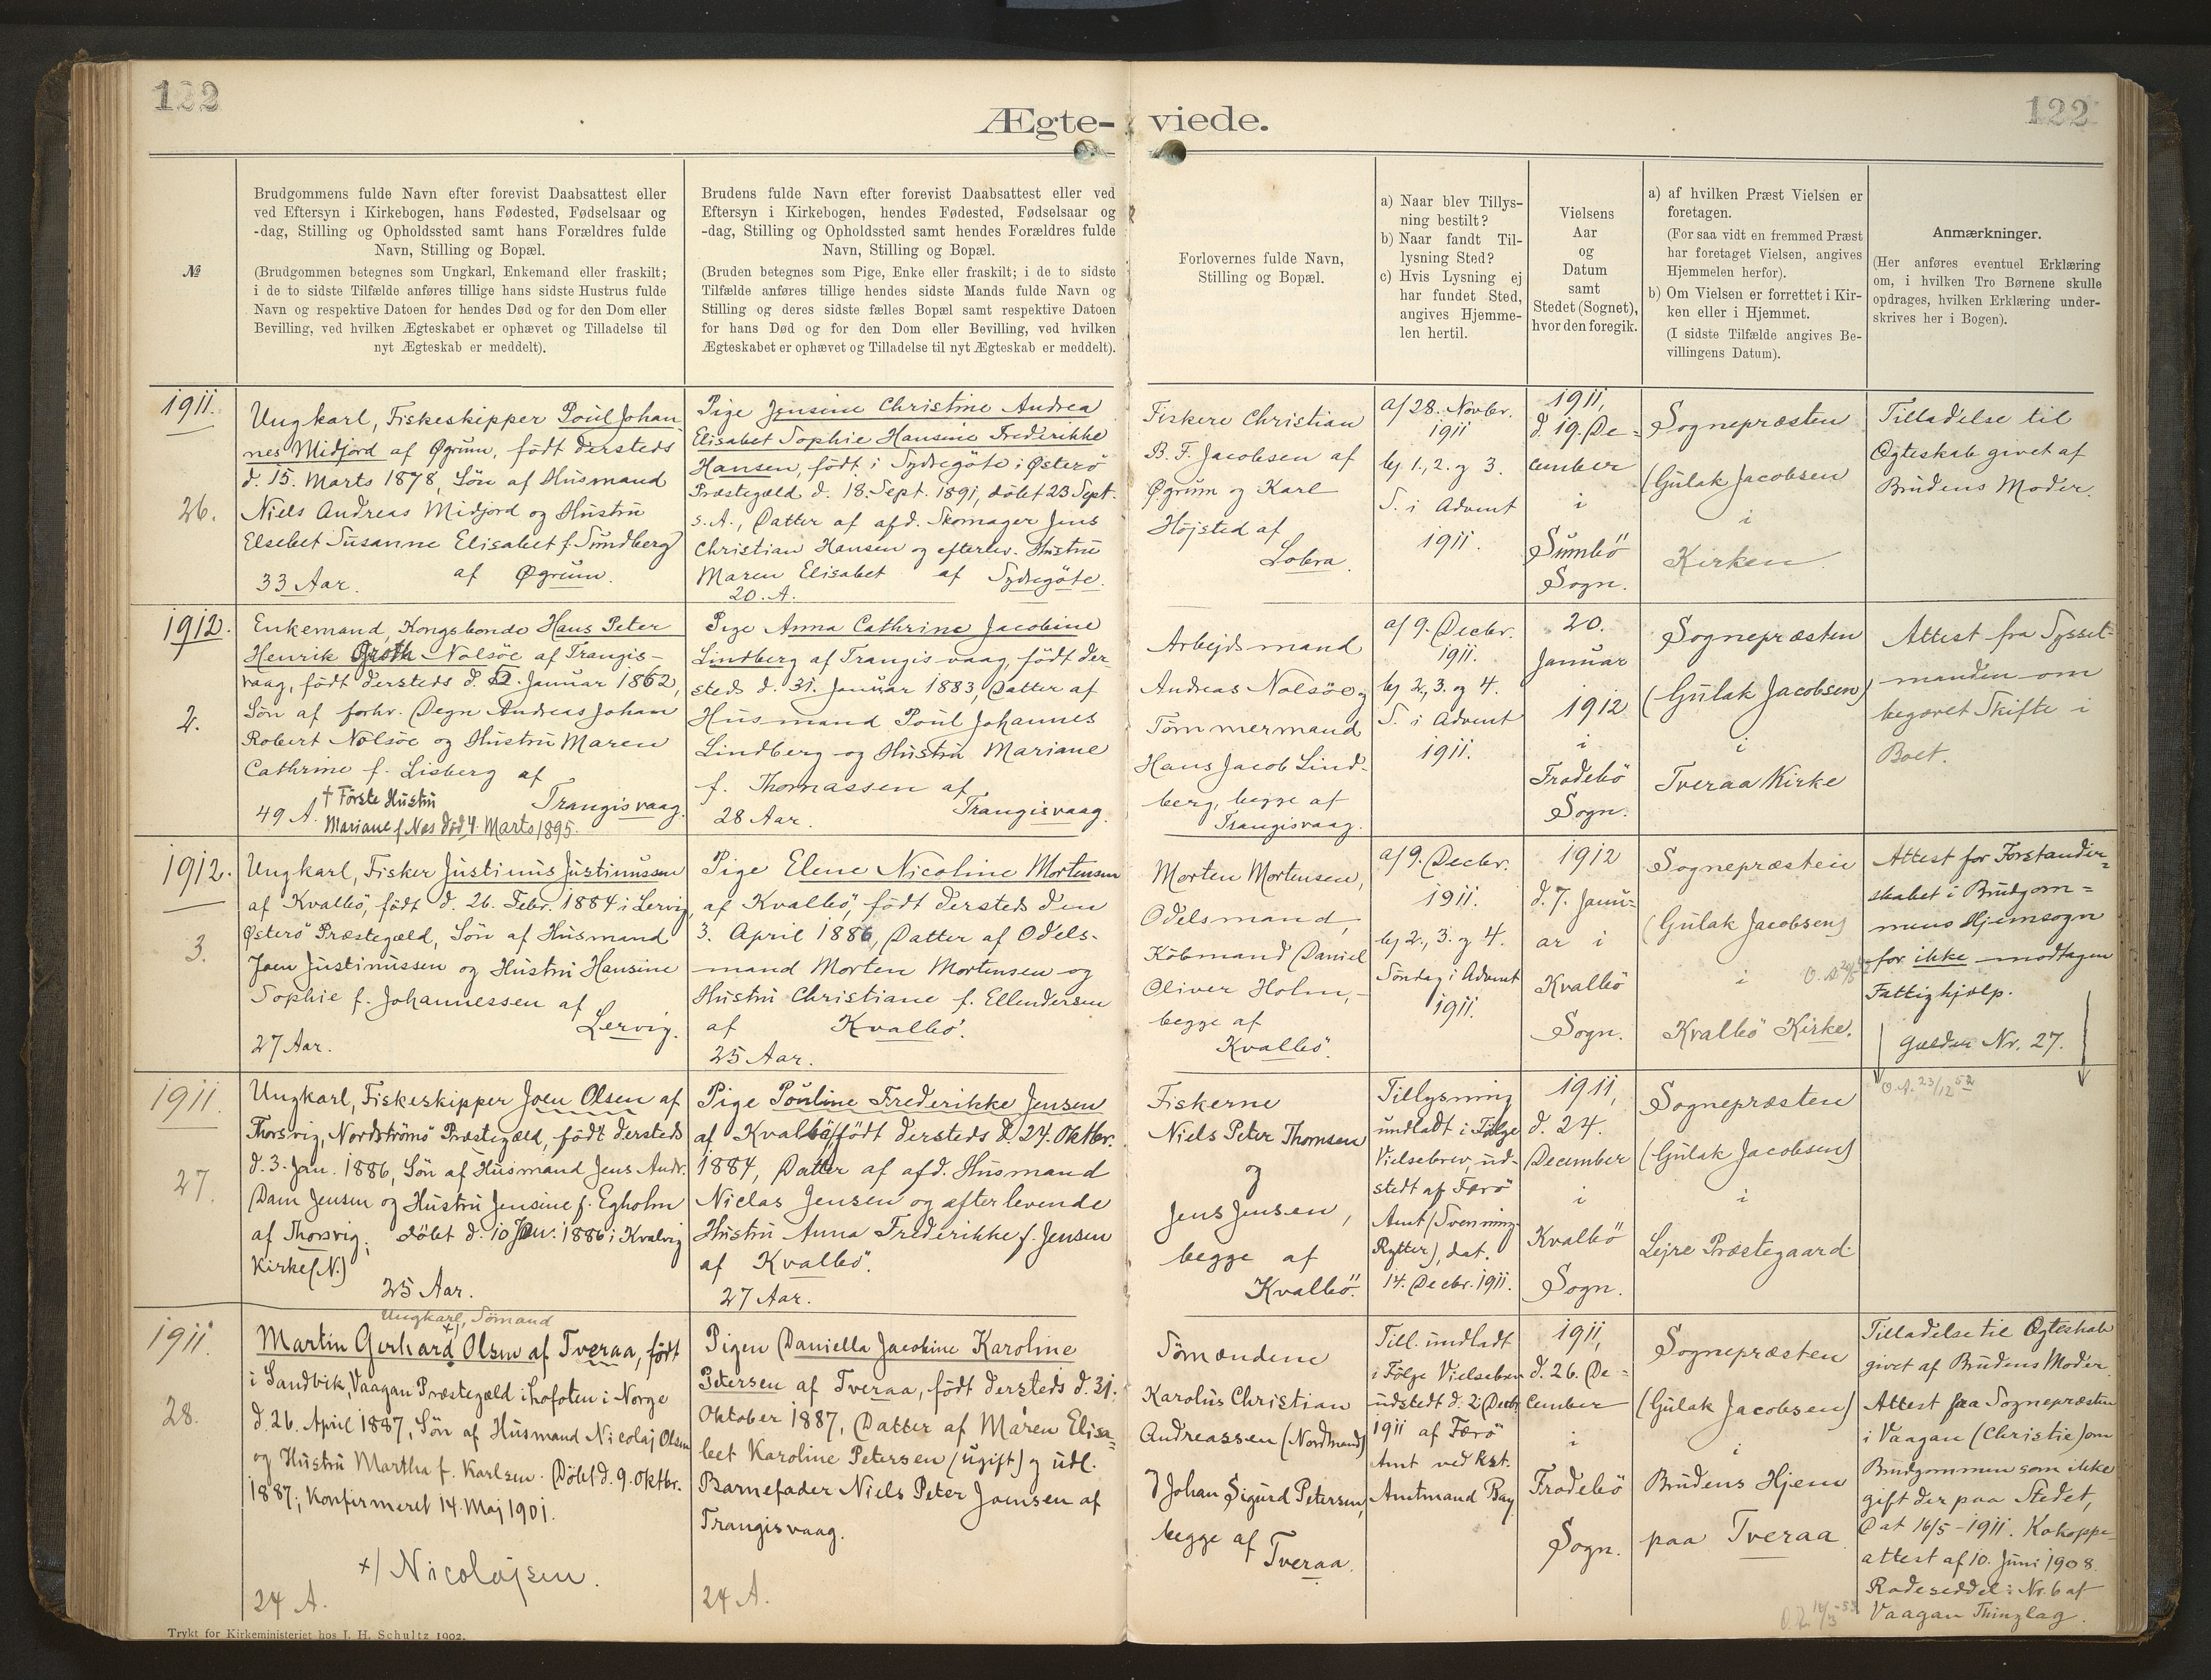 122
122
Ægte-viede.
№
Brudgommens fulde Navn efter forevist Daabsattest eller
ved Eftersyn i Kirkebogen, hans Fødested, Fødselsaar og
-dag, Stilling og Opholdssted samt hans Forældres fulde
Navn, Stilling og Bopæl.
(Brudgommen betegnes som Ungkarl, Enkemand eller fraskilt;
i de to sidste Tilfælde anføres tillige hans sidste Hustrus fulde
Navn og respektive Datoen for hendes Død og for den Dom eller
Bevilling, ved hvilken Ægteskabet er ophævet og Tilladelse til
nyt Ægteskab er meddelt).
Brudens fulde Navn efter forevist Daabsattest eller ved
Eftersyn i Kirkebogen, hendes Fødested, Fødselsaar og
-dag, Stilling og Opholdssted samt hendes Forældres fulde
Navn, Stilling og Bopæl.
(Bruden betegnes som Pige, Enke eller fraskilt; i de to sidste
Tilfælde anføres tillige hendes sidste Mands fulde Navn og
Stilling og deres sidste fælles Bopæl samt respektive Datoen
for hans Død og for den Dom eller Bevilling, ved hvilken
Ægteskabet er ophævet og Tilladelse til nyt Ægteskab er meddelt).
Forlovernes fulde Navn,
Stilling og Bopæl.
a) Naar blev Tillys-
ning bestilt?
b) Naar fandt Til-
lysning Sted?
c) Hvis Lysning ej
har fundet Sted,
angives Hjemme-
len hertil.
Vielsens
Aar
og
Datum
samt
Stedet (Sognet),
hvor den foregik.
a) af hvilken Præst Vielsen er
foretagen.
(For saa vidt en fremmed Præst
har foretaget Vielsen, angives
Hjemmelen herfor).
b) Om Vielsen er forrettet i Kir-
ken eller i Hjemmet.
(I sidste Tilfælde angives Be-
villingens Datum).
Anmærkninger.
(Her anføres eventuel Erklæring
om, i hvilken Tro Børnene skulle
opdrages, hvilken Erklæring under-
skrives her i Bogen).
1911.
26.
Ungkarl, Fiskeskipper Poul Johan
nes Midjord af Øgrum, født dersteds
d. 15. Marts 1878, Søn af Husmand
Niels Andreas Midjord og Hustru
Elsebet Susanne Elisabet f. Sundberg
af Øgrum.
33 Aar.
Pige Jensine Christine Andrea
Elisabet Sophie Hansine Frederikke
Hansen, født i Sydregöte i Østerö
Præstegæld d. 18. Sept. 1891, döbt 23 Sept.
s. A., Datter af afd. Skomager Jens
Christian Hansen og efterlev. Hustru
Maren Elisabet af Sydregöte.
20. A.
Fiskere Christian
B. F. Jacobsen af
Øgrum og Karl
Højsted af
Lobra.
a/ 28. Novbr.
1911
b/ 1., 2. og 3.
S. i Advent
1911.
1911,
d. 19. De-
cember
i
Sumbö
Sogn.
Sognepræsten
(Gulak Jacobsen
i
Kirken.
Tilladelse til
Ægteskab givet af
Brudens Moder.
1912.
2.
Enkemand, Kongsbonde Hans Peter
Henrik Groth Nolsöe af Trangis-
vaag, født dersteds d. Januar 1862,
Søn af forhv. Degn Andreas Johan
Robert Nolsöe og Hustru Maren
Cathrine f. Lisberg af
Trangisvaag.
49 A.
† Förste Hustru
Mariane f. Næs død 4. Marts 1895.
Pige Anna Cathrine Jacobine
Lindberg af Trangisvaag, født der-
steds d. 31. Januar 1883, Datter af
Husmand Poul Johannes
Lindberg og Hustru Mariane
f. Thomassen af
28 Aar. Trangisvaag.
Arbejdsmand
Andreas Nolsöe og
Tömmermand
Hans Jacob Lind-
berg, begge af
Trangisvaag.
a/ 9. Decbr.
1911.
b/ 2., 3. og 4.
S. i Advent
1911.
20.
Januar
1912
i
Frodebö
Sogn.
Sognepræsten
(Gulak Jacobsen)
i
Tveraa Kirke
Attest fra Syssel-
manden om
begæret Skifte i
Boet.
1912.
3.
Ungkarl, Fisker Justinus Justinussen
af Kvalbö, født d. 26. Febr. 1884 i Lervig,
Østerö Præstegæld, Søn af Husmand
Joen Justinussen og Hustru Hansine
Sophie f. Johannessen af
Lervig.
27 Aar.
Pige Elene Nicoline Mortensen
af Kvalbö, født dersteds den
3. April 1886, Datter af Odels-
mand Morten Mortensen og
Hustru Christiane f. Ellendersen
af Kvalbö.
25 Aar.
Morten Mortensen,
Odelsmand,
Köbmand Daniel
Oliver Holm,
begge af
Kvalbö.
a/ 9. Decbr.
1911.
b/ 2., 3. og 4.
Söndag i Advent
1911.
1912
d. 7. Janu-
ar i
Kvalbö
Sogn.
Sognepræsten
(Gulak Jacobsen)
i
Kvalbö Kirke.
Attest for Forstander-
skabet i Brudgom-
mens Hjemsogn
for ikke modtagen
Fattighjælp.
Gælder Nr. 27.
1911.
27.
Ungkarl, Fiskeskipper Joen Olsen af
Thorsvig, Nordströmö Præstegæld, født dersteds
d. 3. Jan. 1886, Søn af Husmand Jens Andr.
Dam Jensen og Hustru Jensine f. Egholm
af Thorsvig; döbt d. 10 Jan. 1886 i Kvalvig
Kirke (N.)
25 Aar.
Pige Pouline Frederikke Jensen
af Kvalbö, født dersteds d. 24. Oktbr.
1884, Datter af afd. Husmand
Niclas Jensen og efterlevende
Hustru Anna Frederikke f. Jensen
af Kvalbö.
27 Aar.
Fiskerne
Niels Peter Thomsen
og
Jens Jensen,
begge af
Kvalbö.
Tillysning
undladt i Følge
Vielsebrev, ud-
stedt af Færö
Amt (Svenning
Rytter), dat.
14. Decbr. 1911.
1911,
d. 24.
December
i
Kvalbö
Sogn.
Sognepræsten
(Gulak Jacobsen)
i
Lejre Præstegaard
O.A. 23/12 52
1911.
28.
Ungkarl, Sömand
Martin Gerhard +) Olsen af Tveraa, født
i Sandvik, Vaagan Præstegæld i Lofoten i Norge
d. 26. April 1887, Søn af Husmand Nicolaj Olsen
og Hustru Martha f. Karlsen. Döbt d. 9. Oktbr.
1887; Konfirmeret 14. Maj 1901.
+) Nicolajsen.
24 A.
Pigen Daniella Jacobine Karoline
Petersen af Tveraa, født dersteds d. 31.
Oktober 1887, Datter af Maren Elisa-
bet Karoline Petersen (ugift) og udl.
Barnefader Niels Peter Joensen af
Trangisvaag.
24 A.
Sömændene
Karolus Christian
Andreassen (Nordmand)
Johan Sigurd Petersen,
begge af
Tveraa.
Till. undladt
i Følge Vielsebrev
udstedt d. 2. Decbr.
1911 af Færö
Amt ved Kst.
Amtmand Bay
1911,
d. 26. De-
cember
i
Frodebö
Sogn.
Sognepræsten
(Gulak Jacobsen)
i
Brudens Hjem
paa Tveraa
Tilladelse til Ægteskab
givet af Brudens Moder.
Attest fra Sognepræsten
i Vaagan (Christie) om
Brudgommen som ikke
gift der paa Stedet,
Dat 16/5-1911. Kokoppe-
attest af 10. Juni 1908.
Rodeseddel: Nr. 6 af
Vaagan Thinglag.
Trykt for Kirkeministeriet hos J. H. Schultz 1902.